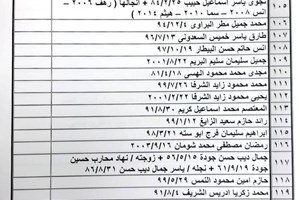 ١٠٥ نجوى ياسر اسماعيل حبيب ٨٤/٢/٢٥ + أنجالها ( رهف ٢٠٠٦ –
انس ٢٠٠٨ – سما ٢٠١٠ – هيثم ٢٠١٤ )
١٠٦ محمد جميل مطر البراوى ٩٤/١٢/٤
١٠٧ طارق ياسر خميس السعدونى ٩٦/٧/١٣
١٠٨ انس حاتم حسن البيطار ٩٧/١٠/١٩
١٠٩ جميل سليمان سليم البريم ٢٠٠٠/٨/٢٢
١١٠ مجدى محمد محمود الهسى ٨١/٤/١٨
١١١ محمد محمود زايد الشرفا ٩٩/٧
١١٢ يحيى محمود زايد الشرفا ٢٠٠١/٢/٥
١١٣ المعتصم محمد اسماعيل كرم ٩١/٨/٣
١١٤ رائد حازم سعيد الزايغ ٩٩/١٢
١١٥ ابراهيم سليمان فرج ابو سته ٩٨/٣/٢١
١١٦ رمضان مصطفى محمد شومان ٢٠٠٣/٩/١٦
١١٧ جمال ديب حسن جودة ٥٦/٥/١٥ + زوجته / نهاد محارب حسين
جودة ٦١/٩/١٩ + نجله / ياسر جمال ديب حسن ٨٦/٨/٣١
١١٨ حازم امين محمود النمس ٩٩/٥/٢٩
١١٩ محمد زكريا ادريس الشريف ٩١/٨/٤